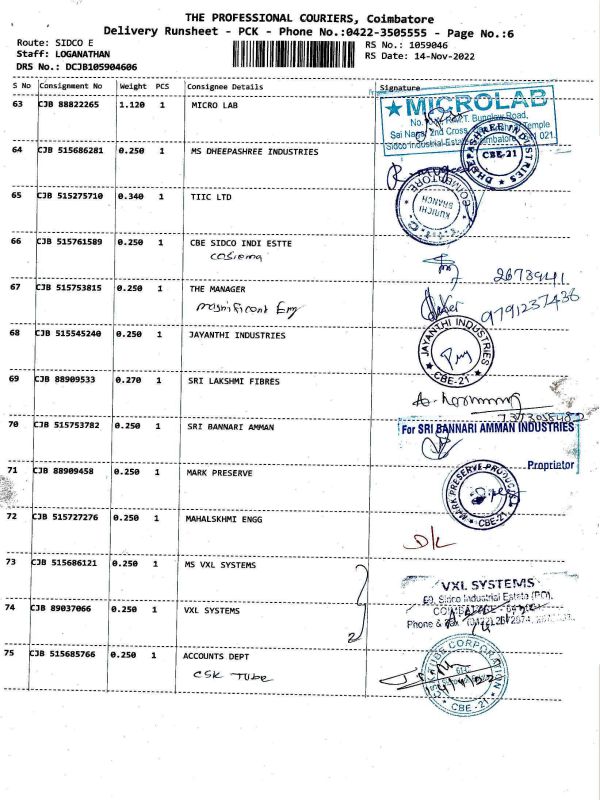 THE PROFESSIONAL COURIERS, Coimbatore
Delivery Runsheet - PCK - Phone No.:0422-3505555 - Page No.:6
Route: SIDCO E
RS No.: 1059046
Staff: LOGANATHAN
RS Date: 14-Nov-2022
DRS No.: DCJB105904606
S No Consignment No Weight PCS Consignee Details Signature
63 CJB 88822265 1.120 1 MICRO LAB
★ MICROLAB
Bungalow Road,
Sai Nagar 2nd Cross, Temple
Sidco Industrial Estate, Coimbatore 021.
64 CJB 515686281 0.250 1 MS DHEEPASHREE INDUSTRIES
DHEEPASHREE INDUSTRIES
CBE-21
65 CJB 515275710 0.340 1 TIIC LTD
COIMBATORE
KURICHI
BRANCH
66 CJB 515761589 0.250 1 CBE SIDCO INDI ESTTE
26739441
67 CJB 515753815 0.250 1 THE MANAGER
magnificant Eng
9791237436
68 CJB 515545240 0.250 1 JAYANTHI INDUSTRIES
JAYANTHI INDUSTRIES
CBE-21
69 CJB 88909533 0.270 1 SRI LAKSHMI FIBRES
70 CJB 515753782 0.250 1 SRI BANNARI AMMAN
For SRI BANNARI AMMAN INDUSTRIES
Proprietor
71 CJB 88909458 0.250 1 MARK PRESERVE
MARK PRESERVE PRODUCTS
CBE-21
72 CJB 515727276 0.250 1 MAHALSKHMI ENGG
73 CJB 515686121 0.250 1 MS VXL SYSTEMS
VXL SYSTEMS
Sidco Industrial Estate (PO),
COIMBATORE
74 CJB 89037066 0.250 1 VXL SYSTEMS
2
Phone &
75 CJB 515685766 0.250 1 ACCOUNTS DEPT
CSK TUBE
TUBE CORPORATION
CBE - 21